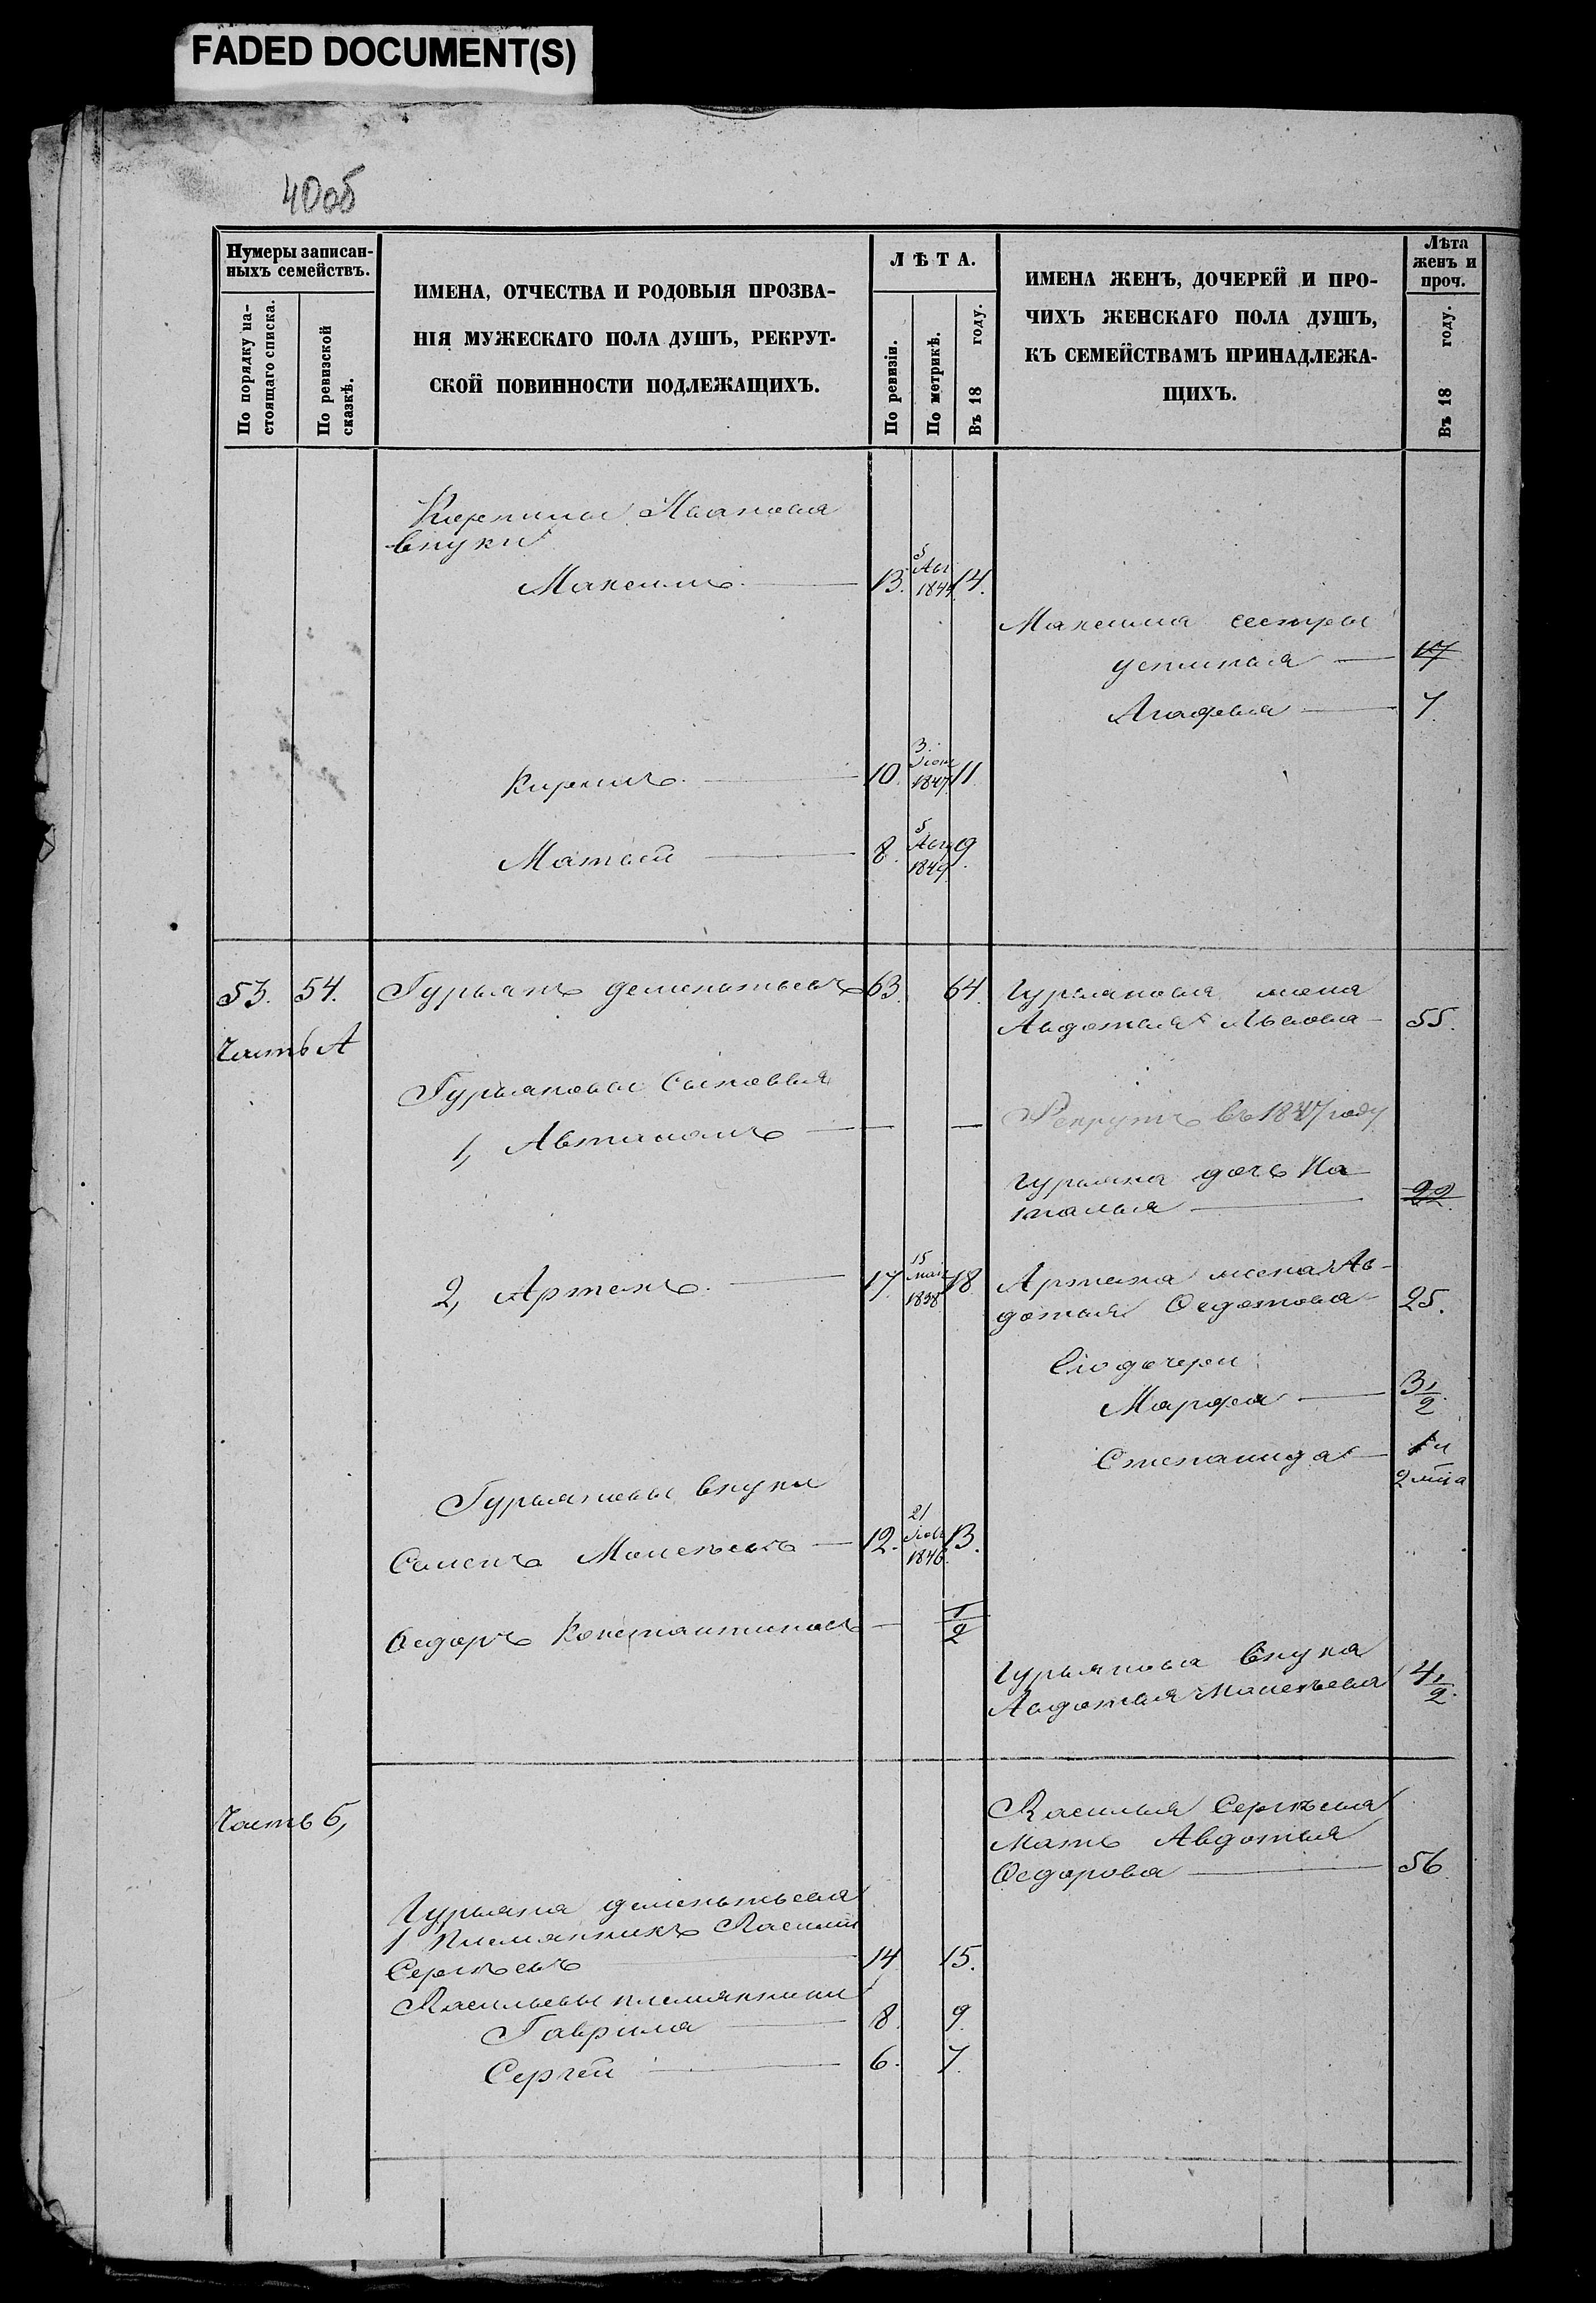 FADED DOCUMENT(S)
40об
Нумеры записан-
ныхъ семействъ.
По порядку на-
стоящаго списка.
По ревизской
сказкѣ.
ИМЕНА, ОТЧЕСТВА И РОДОВЫЯ ПРОЗВА-
НІЯ МУЖЕСКАГО ПОЛА ДУШЪ, РЕКРУТ-
СКОЙ ПОВИННОСТИ ПОДЛЕЖАЩИХЪ.
ЛѢТА.
По ревизіи.
По метрикѣ.
Въ 18 году.
ИМЕНА ЖЕНЪ, ДОЧЕРЕЙ И ПРО-
ЧИХЪ ЖЕНСКАГО ПОЛА ДУШЪ,
КЪ СЕМЕЙСТВАМЪ ПРИНАДЛЕЖА-
ЩИХЪ.
Лѣта
женъ и
проч.
Въ 18 году.
Ивановы
внуки
Максимъ 13. 5 Авг 1844 14.
Максима сестры
устинья 17
Агафья 7.
Кирилъ 10. 3. 1847 11
Матвей 8. 5 Авг 1849 9.
53. 54. Гурьянъ дементьевъ 63. 64.
Гурьянова жена
Авдотья Львова 55.
Часть А
Гурьяновы сыновья
1, Автаномъ — —
Рекрутъ въ 1847 году
Гурьяна дочь На
талья 22.
2, Артемъ 17. 15 мая 1838 18
Артема жена Ав-
дотья Федотова 25.
Его дочери
Марфа 3 1/2
Степанида 1 и
2 мѣца
Гурьяновы внуки
Семенъ 12. 21 1846 13.
Федоръ Константиновъ — 1/2
Гурьянова внука
Авдотья 4 1/2.
Часть Б,
Василья Сергѣева
мать Авдотья
Федорова 56
Гурьяна дементьева
1 племянникъ Василий
Сергѣевъ 14 15.
Васильевы племянники
Гаврила 8. 9.
Сергей 6. 7.